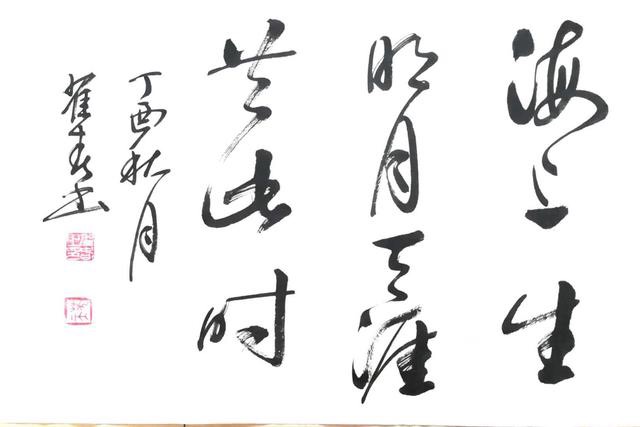 海上生
明月天涯
共此时
丁酉秋月
书